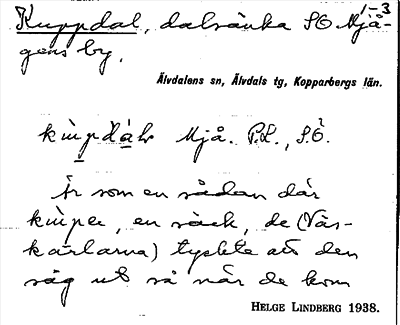 1-3
Kuppdal, dalsänka S.O Mjå-
gens by.
Älvdalens sn, Älvdals tg, Kopparbergs län.
Mjå. P.L., S.Ö.
Är som en sådan där
en säck, de (Väs-
karlarna) tyckte att den
såg ut så när de kom
HELGE LINDBERG 1938.